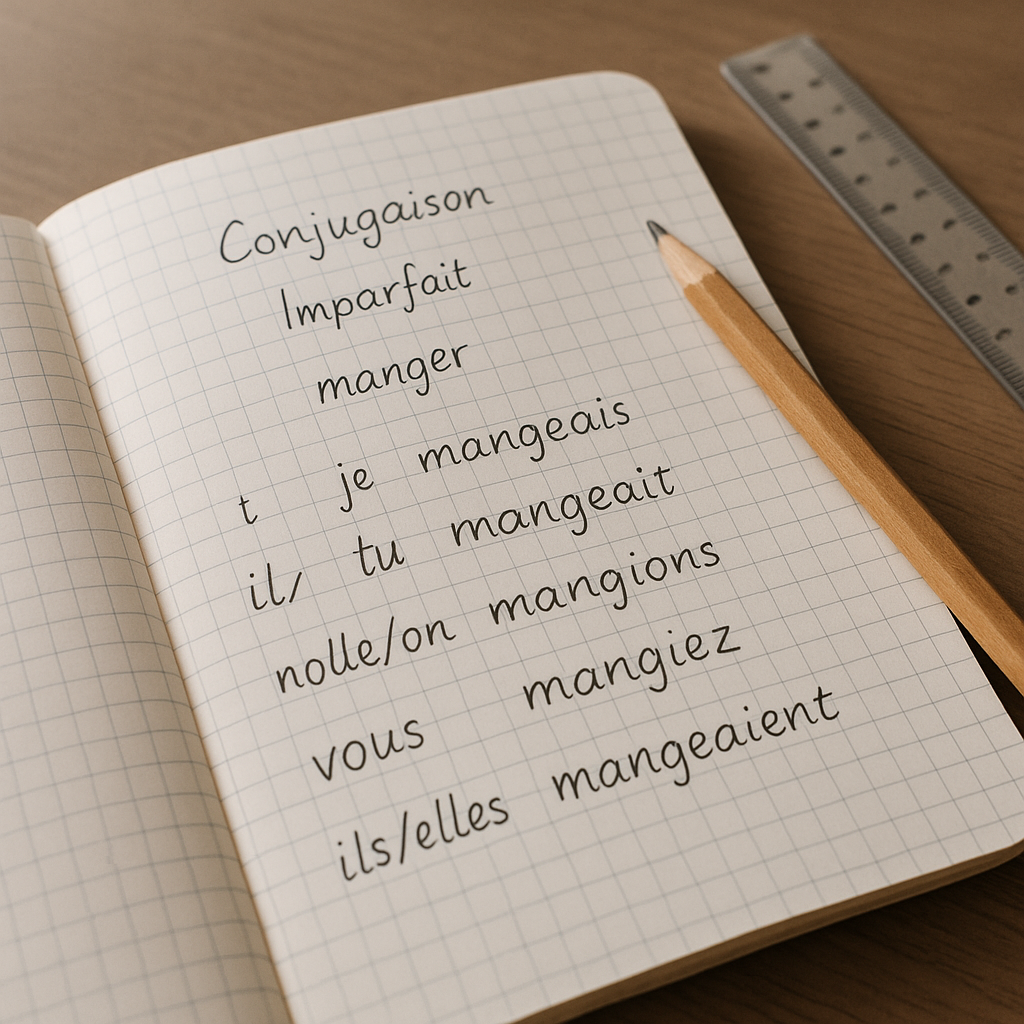 Conjugaison
Imparfait
manger
t je mangeais
il/ tu mangeait
nolle/on mangions
vous mangiez
ils/elles mangeaient